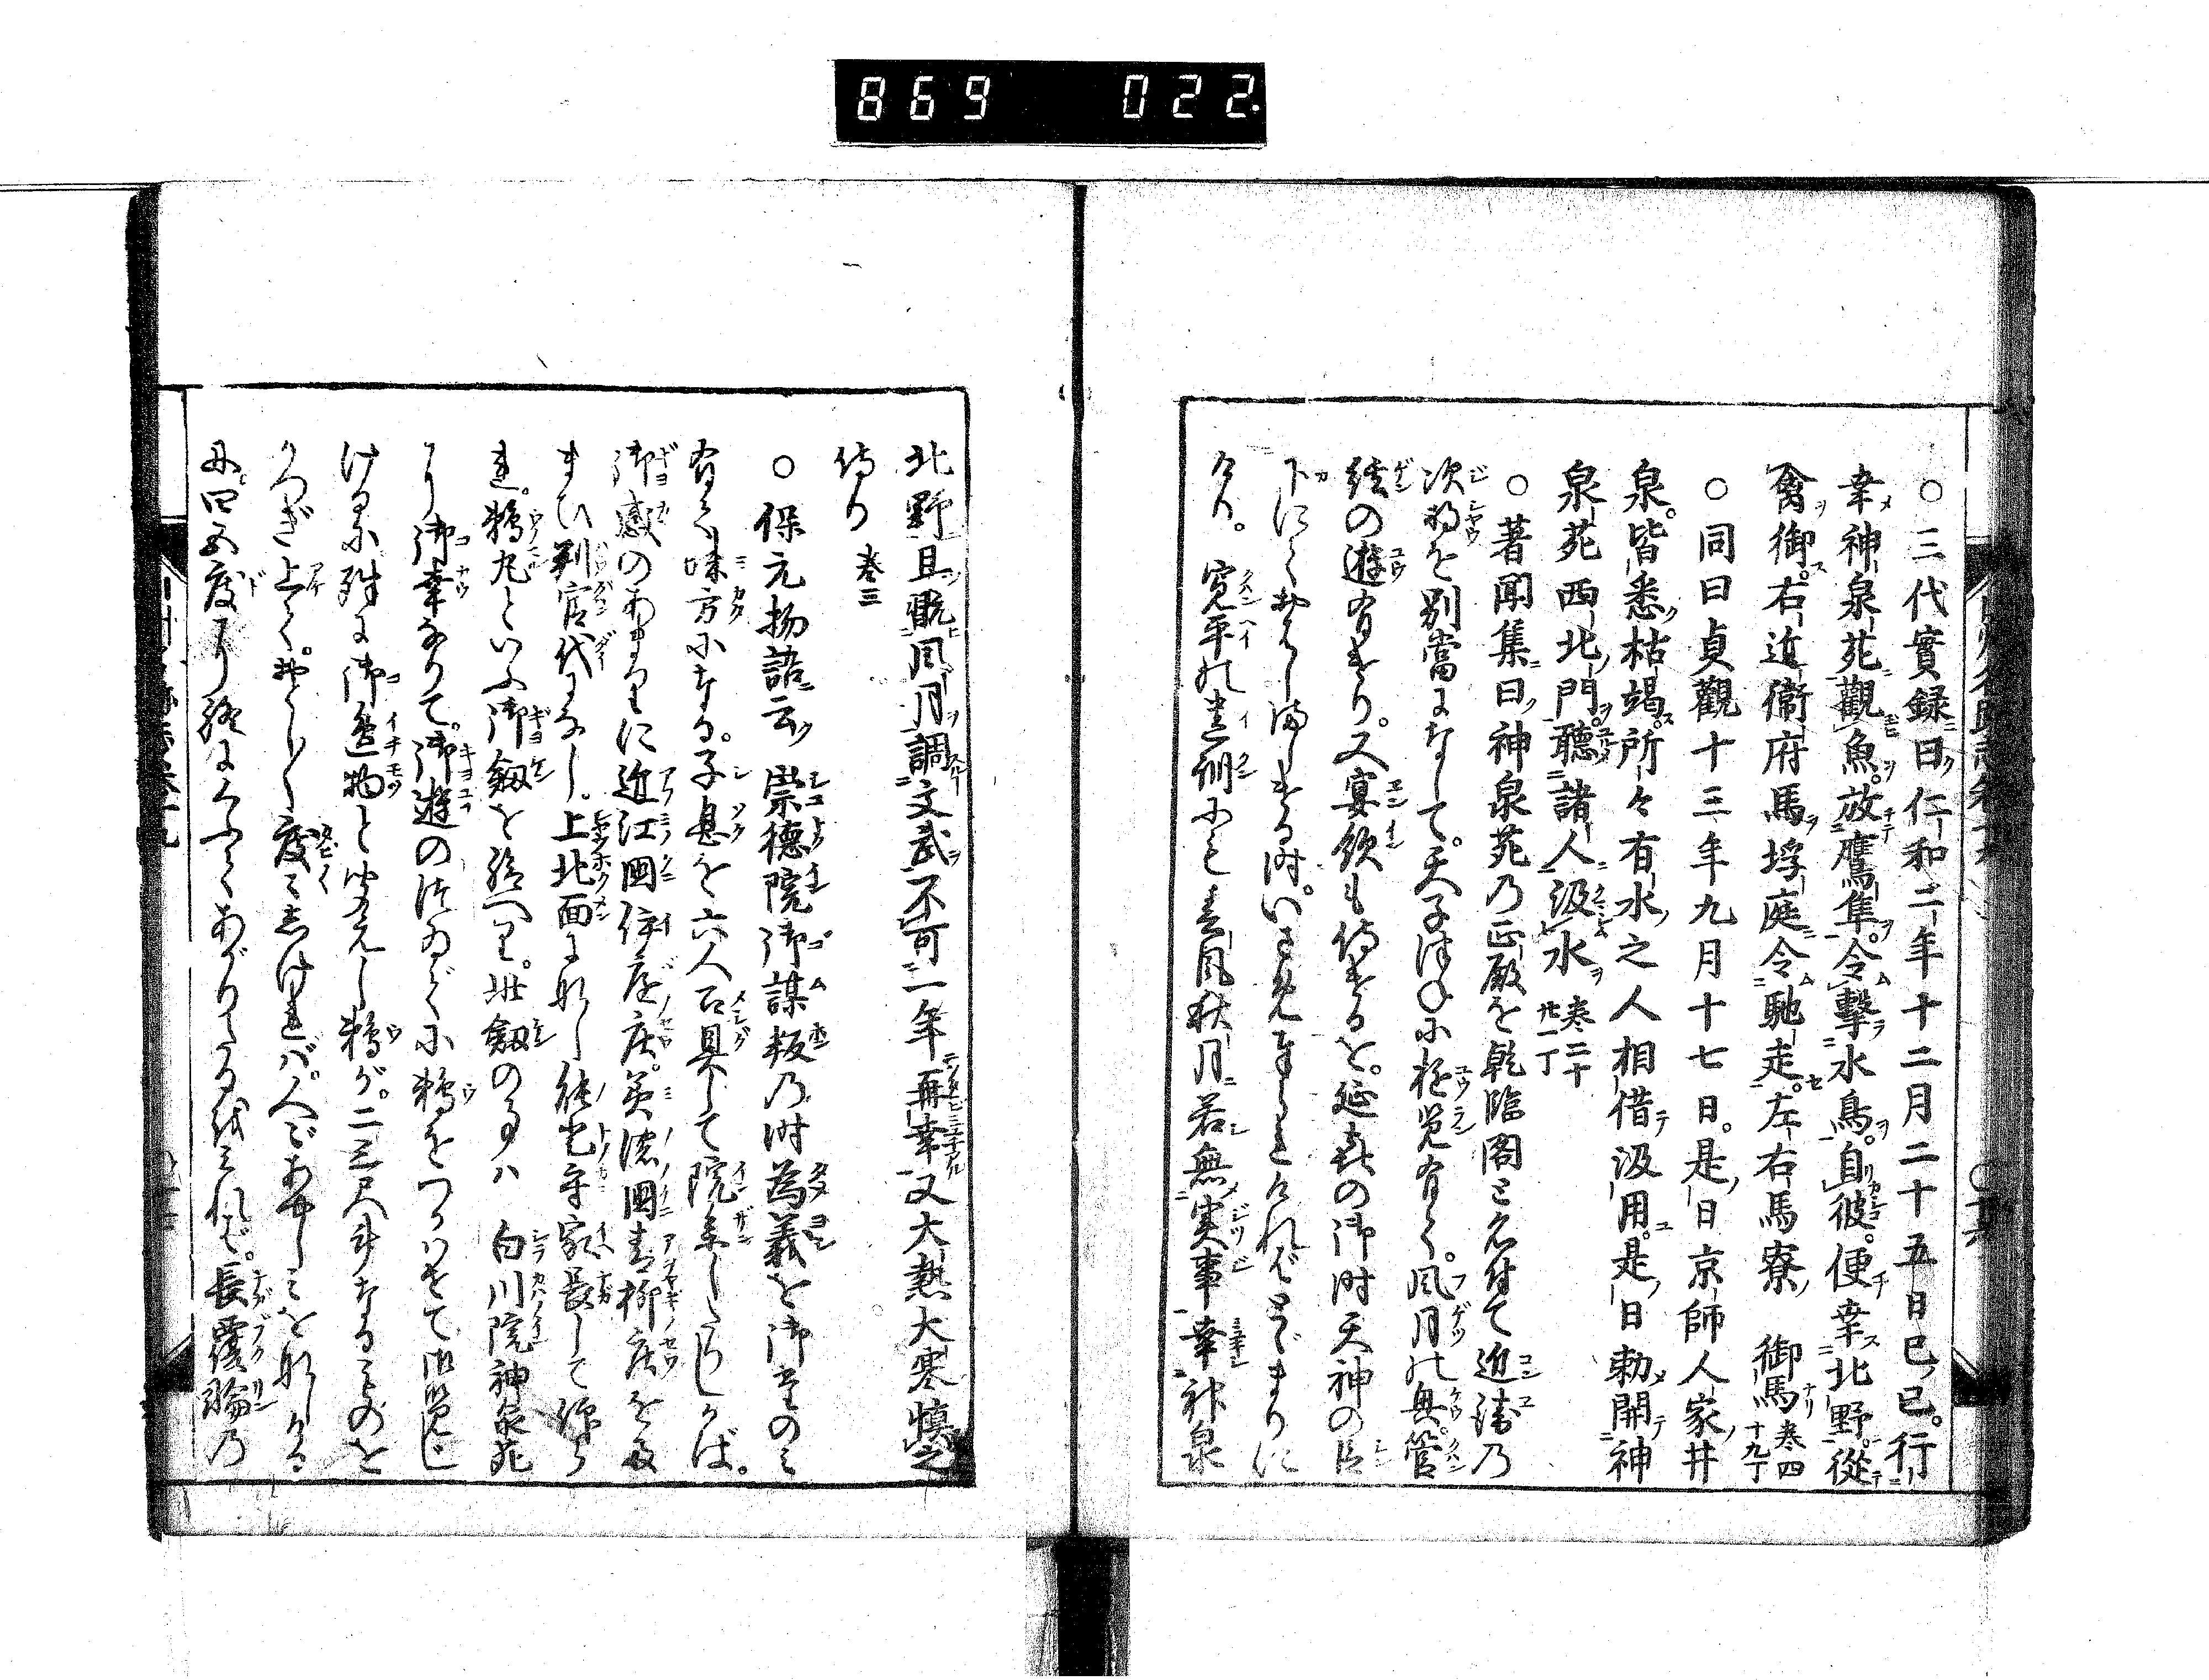 869 022
○三代實録曰仁和二年十二月二十五日己巳。行
幸神泉苑觀魚。放鷹隼。令撃水鳥。自彼。便幸北野。從
禽御。右近衞府馬埒庭令馳走。左右馬寮 御馬 巻四十九丁
○同曰貞觀十三年九月十七日。是日京師人家井
泉。皆悉枯竭。所々有水之人相借汲用。是日勅開神
泉苑西北門。聽諸人汲水 巻二十廿一丁
○著聞集曰神泉苑乃正殿を乾臨閣と名付て近衛の
次將を別當になして。天子つねに遊覧有て。風月の興。管
絃の遊有けり。又宴飲も侍けるを。延喜の御時天神の臣
下にておはしましける時。いさめ奉らせ給ければとゞまりに
けり。寛平の遺訓にも春風秋月若無実事幸神泉
北野且翫風月調文武不可一年再幸又大熱大寒慎之
侍り 巻三
○保元物語云 崇徳院御謀叛乃時為義を御方のみ
有て味方になる。子息を六人召具して院参したりしかば。
御感のあまりに近江國伊庭庄。美濃國青柳庄をた
まひ判官代になし。上北面に
れ。鵜丸といふ御劔を給へり。此劔の事ハ 白川院神泉苑
に御幸なりて。御遊のつゐでに鵜をつかはせて御覧じ
けるに殊に御逸物と聞えし鵜が。二三尺斗なるものを
かづぎ上て。おとし〱度々しければ。人〻あやしみをなしける
に。四五度に終にくふてあがりたるをみれば。長覆輪の